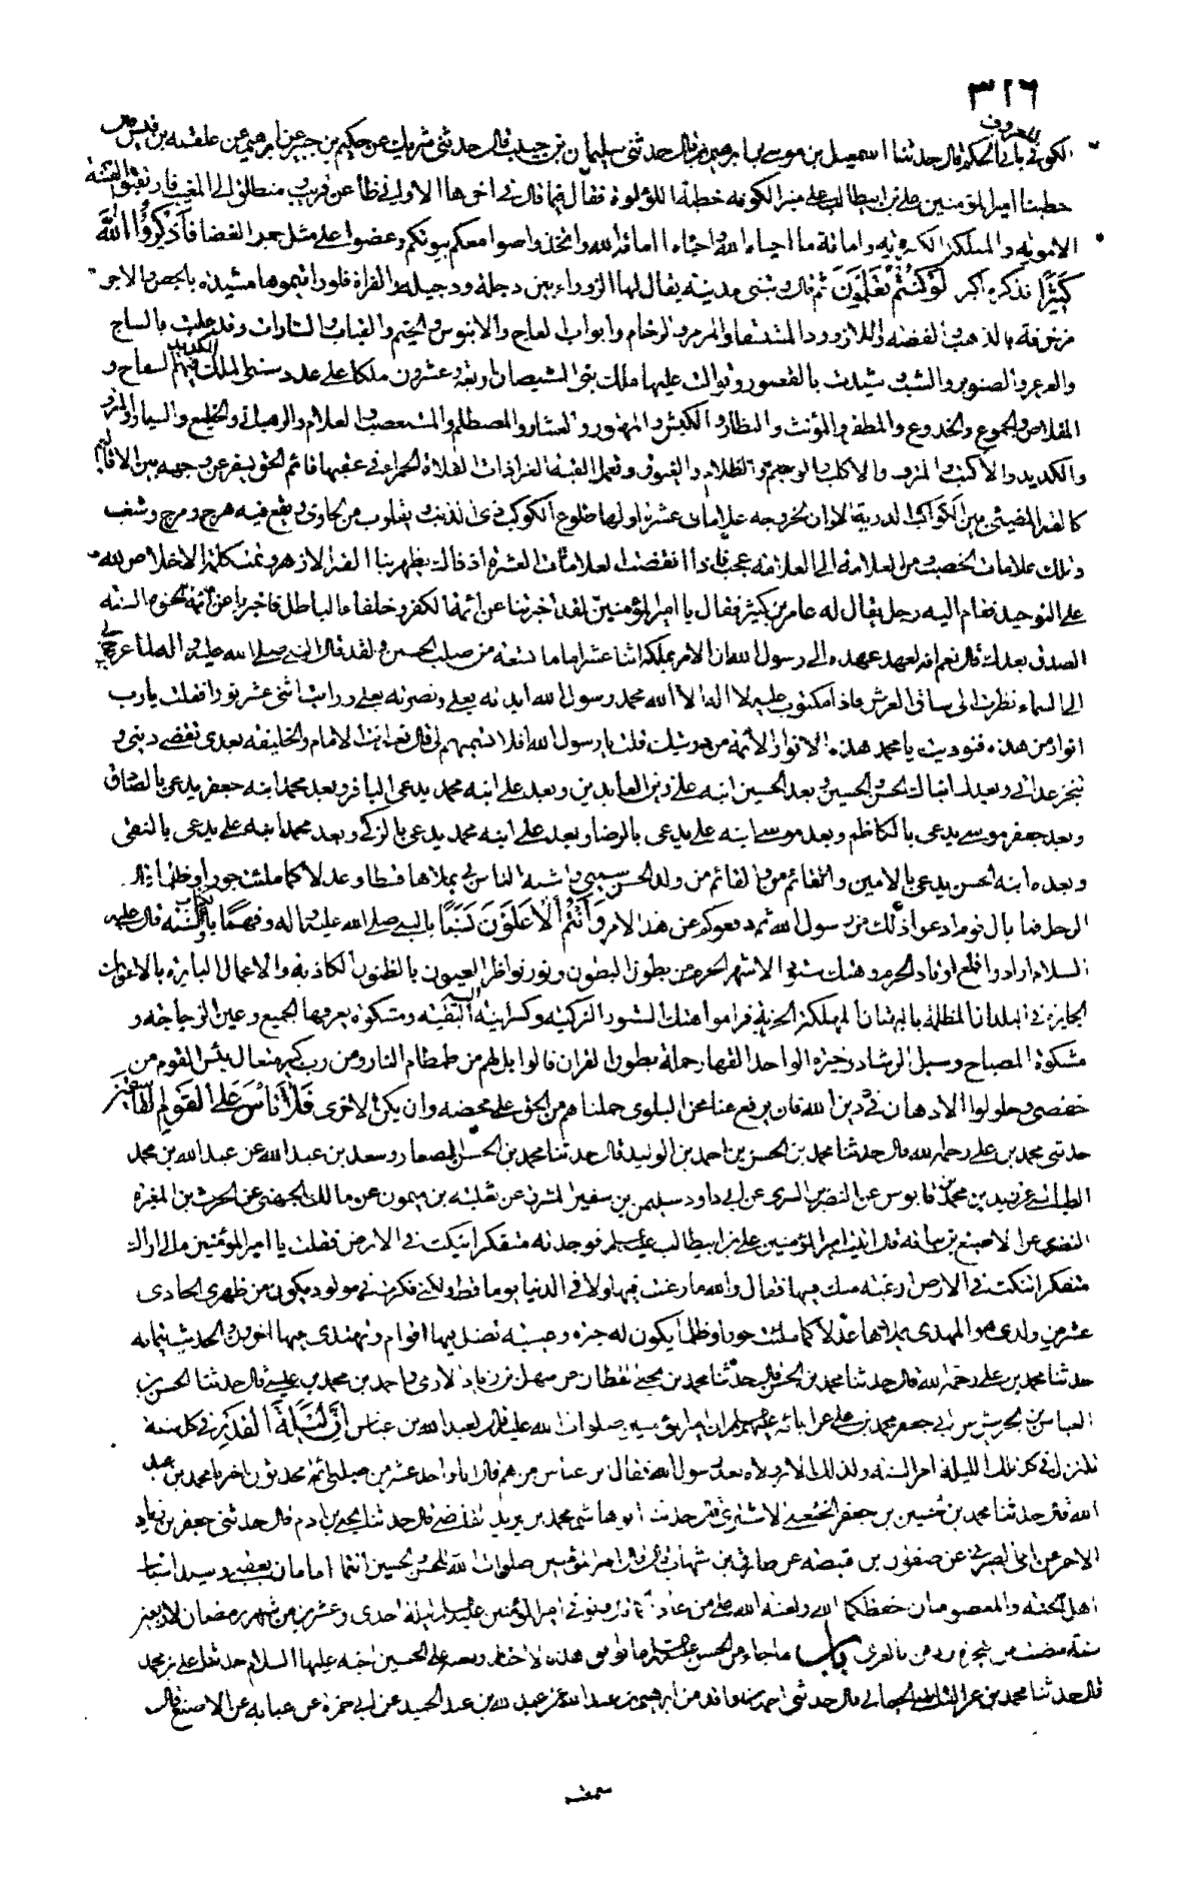 ٣١٦
المعروف
الكوفي بابي الحكم قال حدثنا اسمعيل بن موسى بن ابرهيم قال حدثني سليمان بن حبيب قال حدثني شريك عن حكيم بن جبير عن ابرهيم عن علقمة بن قيس قال
خطبنا امير المؤمنين علي بن ابيطالب على منبر الكوفة خطبة اللؤلؤة فقال فيما قال في اخرها الا واني ظاعن عن قريب ومنطلق الى المغيب فارتقبوا الفتنة
الاموية والمملكة الكسروية واماتة ما احياه الله واحياء ما اماته الله واتخذوا صوامعكم بيوتكم وعضوا على مثل جمر الغضا فَاذْكُرُوا اللهَ
كَثِيرًا فذكره اكبر لَوْ كُنْتُمْ تَعْلَمُونَ ثم قال وتبنى مدينة يقال لها الزوراء بين دجلة ودجيله والفراة فلو رايتموها مشيدة بالجص والاجر
مزخرفة بالذهب والفضة واللازورد المستسقا والمرمر والرخام وابواب العاج والابنوس والخيم والقباب والستارات وقد عليت بالساج
والعرعر والصنوبر والشب وشيدت بالقصور وتوالت عليها ملك بني الشيصبان اربعة وعشرون ملكا على عدد سني الملك فيهم السفاح و
المقلاص والجموع والخدوع والمظفر والمؤنث والنظار والكبش والمهتور والعشار والمصطلم والمستصعب والعلام والرهباني والخليع والسيار والمترف
والكديد والاكتب والمترف والاكلب والوجيم والظلام والعيوق وتعمل القبة الغبراء ذات الفلاة الحمراء في عقبها قائم الحق يسفر عن وجهه بين الاقاليم
كالقمر المضيئ بين الكواكب الدرية الا وان لخروجه علامات عشرة اولها طلوع الكوكب ذي الذنب ويقارب من الحاوي ويقع فيه هرج ومرج وشغب
وتلك علامات الخصب ومن العلامة الى العلامة عجب فاذا انقضت العلامات العشرة اذ ذاك يظهر بنا القمر الازهر وتمت كلمة الاخلاص لله
على التوحيد فقام اليه رجل يقال له عامر بن كثير فقال يا امير المؤمنين لقد اخبرتنا عن ائمة الكفر وخلفاء الباطل فاخبرنا عن ائمة الحق والسنة
الصدق بعدك قال نعم انه لعهد عهده الي رسول الله ان الامر يملكه اثنا عشر اماما تسعة من صلب الحسين ولقد قال النبي صلى الله عليه واله لما عرج بي
الى السماء نظرت الى ساق العرش فاذا مكتوب عليه لا اله الا الله محمد رسول الله ايدته بعلي ونصرته بعلي ورايت اثني عشر نورا فقلت يا رب
انوار من هذه فنوديت يا محمد هذه الانوار الائمة من ذريتك قلت يا رسول الله افلا تسميهم لي قال نعم انت الامام والخليفة بعدي تقضي ديني و
تنجز عداتي وبعدك ابناك الحسن والحسين وبعد الحسين ابنه علي زين العابدين وبعد علي ابنه محمد يدعى الباقر وبعد محمد ابنه جعفر يدعى بالصادق
وبعد جعفر موسى يدعى بالكاظم وبعد موسى ابنه علي يدعى بالرضا وبعد علي ابنه محمد يدعى بالزكي وبعد محمد ابنه علي يدعى بالنقي
وبعده ابنه الحسن يدعى بالامين والقائم من ولد الحسين سميي واشبه الناس بي يملاها قسطا وعدلا كما ملئت جورا وظلما قال
الرجل فما بال قوم وعوا ذلك من رسول الله ثم دفعوكم عن هذا الامر وَأَنْتُمُ الْأَعْلَوْنَ نَسَبًا بالنبي صلى الله عليه واله وفهما بالكتاب والسنة قال عليه
السلام ارادوا قلع اوتاد الحرم وهتك ستور الاشهر الحرم من بطون البطون ونور نواظر العيون بالظنون الكاذبة والاعمال البائرة بالاعوان
الجائرة في البلدان المظلمة بالبهتان المهلكة الخربة فراموا هتك الستور الزكية وكسر انية الله التقية ومشكوة يعرفها الجميع وعين الزجاجة و
مشكوة المصباح وسبل الرشاد وخيرة الواحد القهار حملة بطون القران فالويل لهم من طمطام النار ومن رب كبير متعال بئس القوم من
خفضني وحاولوا الادهان في دين الله فان يرفع عنا محن البلوى حملناهم من الحق على محضه وان يكن الاخرى فَلَا تَأْسَ عَلَى الْقَوْمِ الْفَاسِقِينَ
حدثني محمد بن علي رحمه الله قال حدثنا محمد بن الحسن بن احمد بن الوليد قال حدثنا محمد بن الحسن الصفار وسعد بن عبد الله عن عبد الله بن محمد
الطيالسي عن زيد بن محمد بن قابوس عن النضر بن السري عن ابي داود سليمن بن سفين المسترق عن ثعلبة بن ميمون عن مالك الجهني عن الحرث بن المغيرة
النصري عن الاصبغ بن نباتة قال اتيت امير المؤمنين علي بن ابيطالب عليه السلم فوجدته متفكرا ينكت في الارض فقلت يا امير المؤمنين مالي اراك
متفكرا تنكت في الارض ارغبة منك فيها فقال والله ما رغبت فيها ولا في الدنيا يوما قط ولكني فكرت في مولود يكون من ظهري الحادي
عشر من ولدي هو المهدي يملاها عدلا كما ملئت جورا وظلما يكون له حيرة وغيبة تضل فيها اقوام وتهتدي فيها اخرون الحديث بتمامه
حدثنا محمد بن علي رحمه الله قال حدثنا محمد بن الحسن قال حدثنا محمد بن يحيى العطار عن سهل بن زياد الادمي واحمد بن محمد بن عيسى قال حدثنا الحسن بن
العباس بن الحريش عن ابي جعفر محمد بن علي عن ابائه عليهم السلم ان امير المؤمنين صلوات الله عليه قال لعبد الله بن عباس إِنَّ لَيْلَةَ الْقَدْرِ في كل سنة
تنزل في تلك الليلة امر السنة ولذلك الامر ولاة بعد رسول الله فقال ابن عباس من هم قال انا واحد عشر من صلبي ائمة محدثون اخبرنا محمد بن عبد
الله قال حدثنا محمد بن الحسين بن جعفر الخثعمي الاشناني قال حدثنا ابو هاشم محمد بن يزيد القاضي قال حدثنا يحيى بن ادم قال حدثني جعفر بن زياد
الاحمر عن ابي الصيرفي عن صفوان بن قبيصة عن طارق بن شهاب قال قال امير المؤمنين صلوات الله للحسن والحسين انتما امامان بعقبي وسيدا شباب
اهل الجنة والمعصومان حفظكما الله ولعنة الله على من عاداكما توفي امير المؤمنين عليه السلم ليلة احدى وعشرين من شهر رمضان لاربعين
سنة مضت من الهجرة ودفن بالغري باب ما جاء عن الحسن عليه السلم ما يوافق هذه الاخبار ونصه على الحسين اخيه عليهما السلام حدثنا علي بن محمد
قال حدثنا محمد بن عمر القاضي الجعابي قال حدثني احمد بن واقد عن ابرهيم بن عبد الله عن عبد الله بن عبد الحميد عن ابي حمزة عن عباية عن الاصبغ قال
سمعت